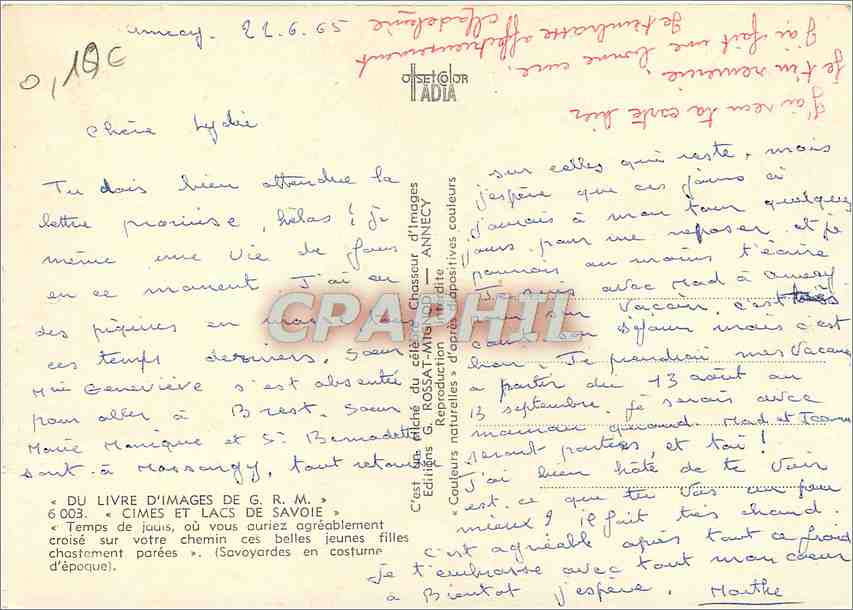 Annecy. 22.6.65
0,10€
J'ai reçu ta carte hier
Je t'en remercie,
J'ai fait une bonne cure.
Je t'embrasse affectueusement
Madeleine
OFFSETCOLOR
ADIA
Chère Lydie
Tu dois bien attendre la
lettre promise, hélas ! je
mène une vie de fous
en ce moment. J'ai eu
des piqûres en
ces temps derniers. Soeur
Mie Geneviève s'est absentée
pour aller à Brest. Soeur
Marie Monique et St Bernadette
sont à Massongy, tout retombe
sur celles qui reste, mais
j'espère que ces jours ci
j'aurais à mon tour quelques
jours pour me reposer et je
pourrais au moins t'écrire
Je suis avec Mad à Annecy
sur Vaccin. c'est très
court son séjour mais c'est
bon. Je prendrai mes vacances
à partir du 13 août au
13 septembre. Je serais avec
maman quand Mad et
seront parties, et toi !
J'ai bien hâte de te voir
est-ce que tu vas un peu
mieux ? il fait très chaud.
c'est agréable après tout ce froid
Je t'embrasse avec tout mon coeur
à Bientôt j'espère. Marthe
C'est un cliché du célèbre Chasseur d'Images
Editions G. ROSSAT-MIGNOD — ANNECY
Reproduction interdite
« Couleurs naturelles » d'après diapositives couleurs
CPAPHIL
« DU LIVRE D'IMAGES DE G. R. M. »
6 003. « CIMES ET LACS DE SAVOIE »
« Temps de jadis, où vous auriez agréablement
croisé sur votre chemin ces belles jeunes filles
chastement parées ». (Savoyardes en costume
d'époque).